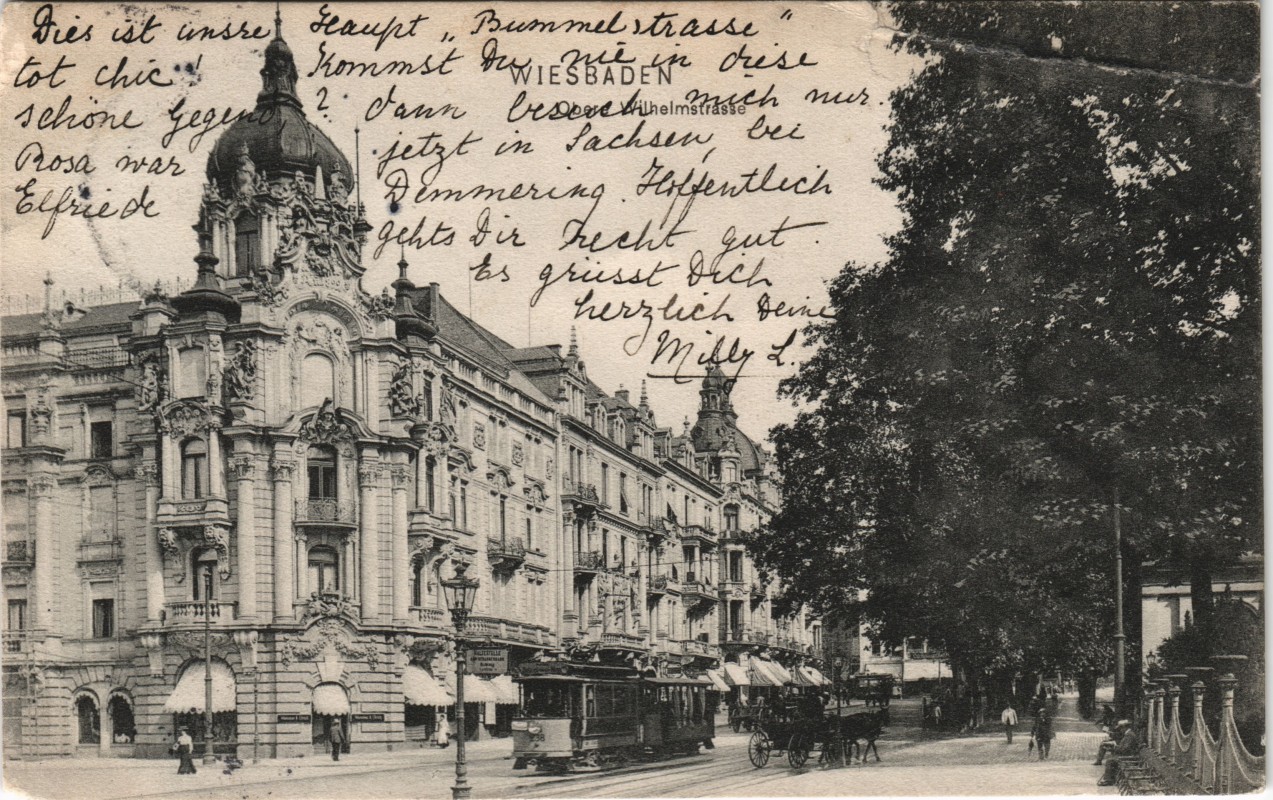 Dies ist unsre Haupt „Bummelstrasse"
tot chic! Kommst Du nie in diese
schöne Gegend? dann besuch mich nur.
Rosa war jetzt in Sachsen, bei
Elfriede Demmering. Hoffentlich
gehts Dir recht gut.
Es grüsst Dich
herzlich Deine
Milly L.
WIESBADEN
Obere Wilhelmstrasse